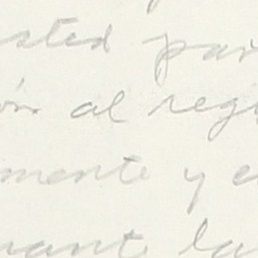 sted par
ón al reg
mente y e
uant la